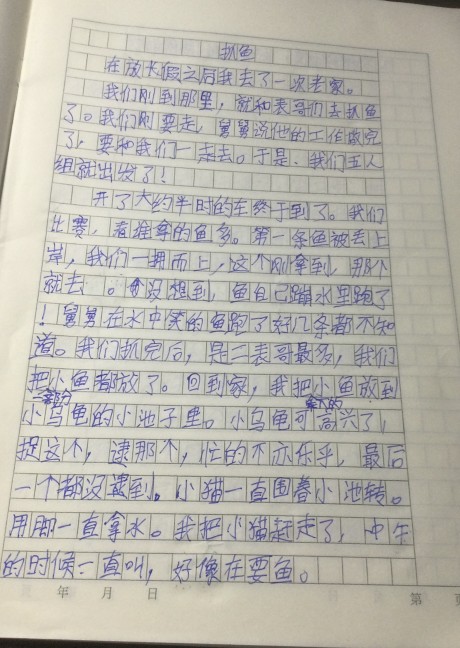 抓鱼
在放长假之后我去了一次老家。
我们刚到那里，就和表哥们去抓鱼
了。我们刚要走，舅舅说他的工作做完
了，要和我们一走去。于是，我们五人
组就出发了！
开了大约半时的车终于到了。我们
比赛，看谁拿的鱼多。第一条鱼被丢上
岸，我们一拥而上，这个刚拿到，那个
就去 。没想到，鱼自己蹦水里跑了
！舅舅在水中笑的鱼跑了好几条都不知
道。我们抓完后，是三表哥最多，我们
把小鱼都放了。回到家，我把小鱼放到
一部分 拿下的
小乌龟的小池子里。小乌龟可高兴了，
捉这个，逮那个，忙的不亦乐乎，最后
一个都没逮到。小猫一直围着小池转。
用脚一直拿水。我把小猫赶走了，中午
的时候一直叫，好像在要鱼。
年 月 日 第 页